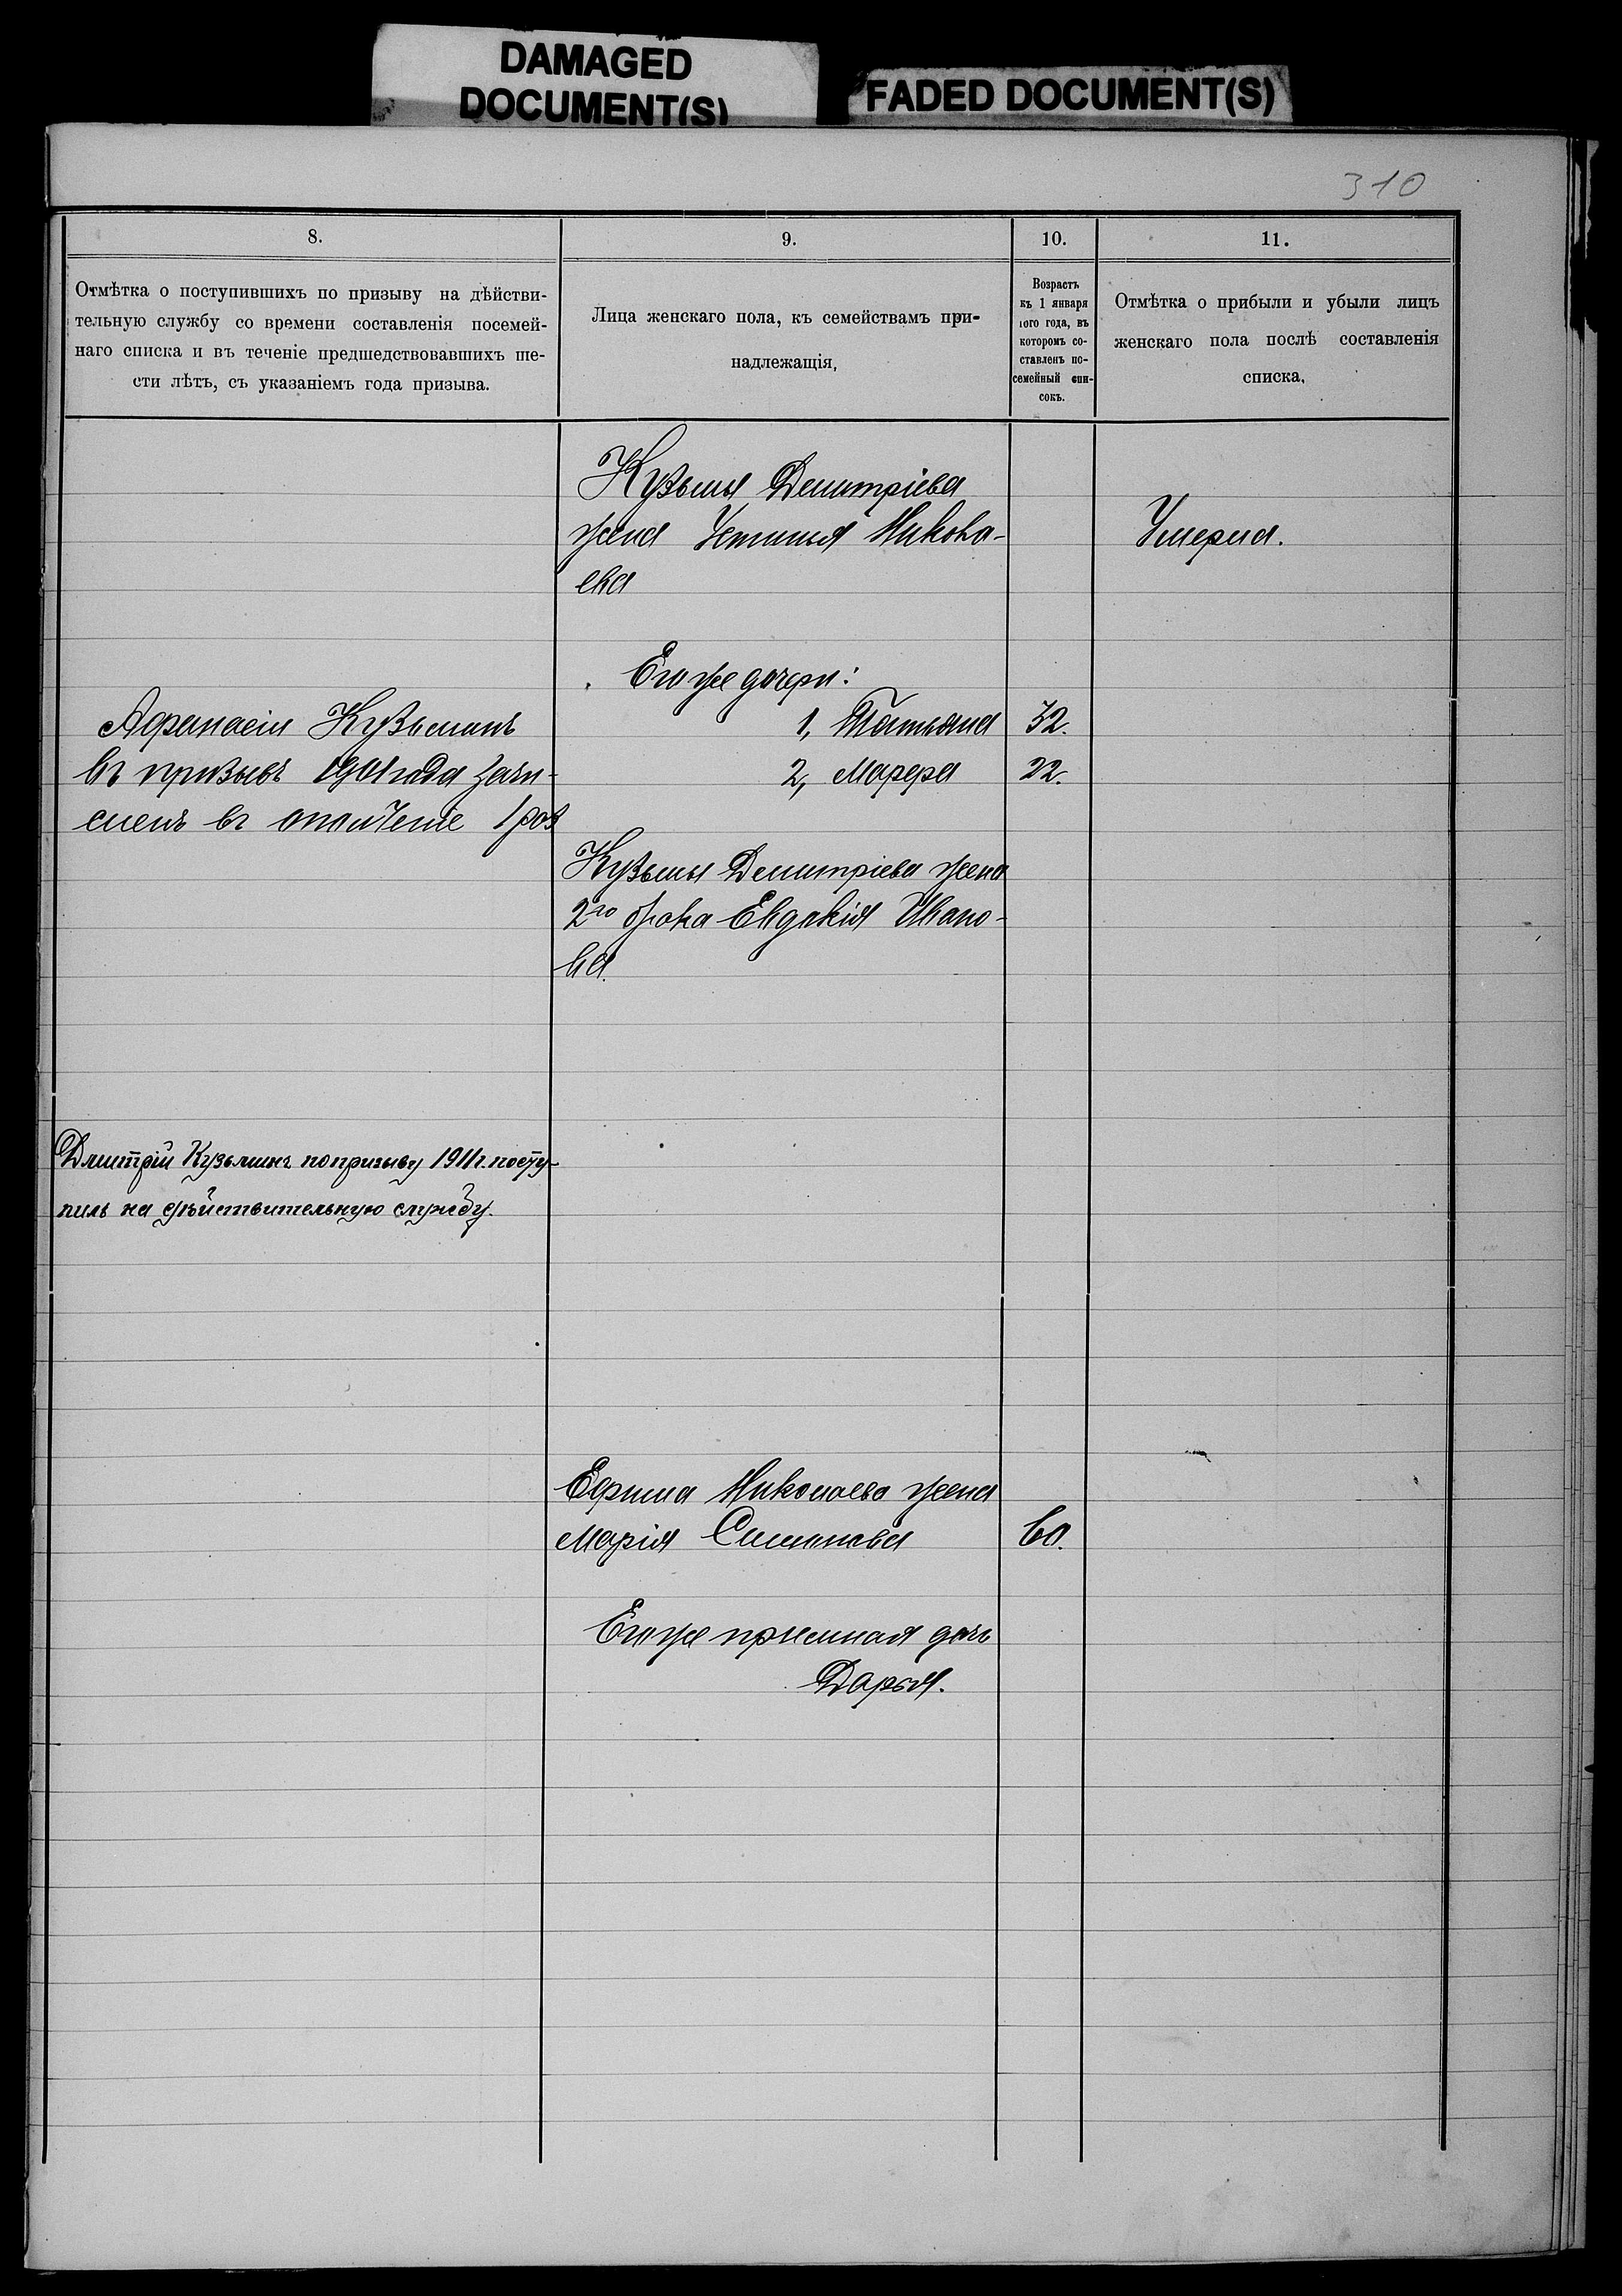 DAMAGED
DOCUMENT(S)
FADED DOCUMENT(S)
310
8.
Отмѣтка о поступившихъ по призыву на дѣйстви-
тельную службу со времени составленія посемей-
наго списка и въ теченіе предшедствовавшихъ ше-
сти лѣтъ, съ указаніемъ года призыва.
9.
Лица женскаго пола, къ семействамъ при-
надлежащія,
10.
Возрастъ
къ 1 января
того года, въ
которомъ со-
ставленъ по-
семейный спи-
сокъ.
11.
Отмѣтка о прибыли и убыли лицъ
женскаго пола послѣ составленія
списка,
Кузьмы Демитріева
жена Устинья Никола-
ева
Умерла.
Его же дочери:
1, Татьяна 32.
2, Марфа 22.
Афанасій Кузьминъ
въ призывъ 1901 года зачи-
сленъ въ ополченіе 1 раз
Кузьмы Демитріева жена
2го брака Евдокія Ивано-
ва.
Дмитрій Кузьминъ по призыву 1911 г. посту-
пилъ на дѣйствительную службу.
Ефима Николаева жена
Марія Симонова 60.
Его же пріемная дочь
Дарья.